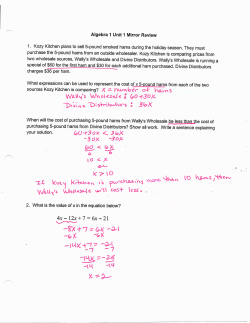 Algebra 1 Unit 1 Mirror Review
1. Kozy Kitchen plans to sell 5-pound smoked hams during the holiday season. They must
purchase the 5-pound hams from an outside wholesaler. Kozy Kitchen is comparing prices from
two wholesale sources, Wally's Wholesale and Divine Distributors. Wally's Wholesale is running a
special of $60 for the first ham and $30 for each additional ham purchased. Divine Distributors
charges $36 per ham.
What expressions can be used to represent the cost of x 5-pound hams from each of the two
sources Kozy Kitchen is comparing? x = number of hams
Wally's Wholesale: 60+30x
Divine Distributors: 36x
When will the cost of purchasing 5-pound hams from Wally's Wholesale be less than the cost of
purchasing 5-pound hams from Divine Distributors? Show all work. Write a sentence explaining
your solution.
60+30x < 36x
-30x -30x
60 < 6x
6 6
10 < x
or
x > 10
If Kozy Kitchen is purchasing more than 10 hams, then
Wally's Wholesale will cost less.
2. What is the value of x in the equation below?
4x − 12x + 7 = 6x − 21
-8x + 7 = 6x - 21
-6x -6x
-14x + 7 = -21
-7 -7
-14x = -28
-14 -14
x = 2